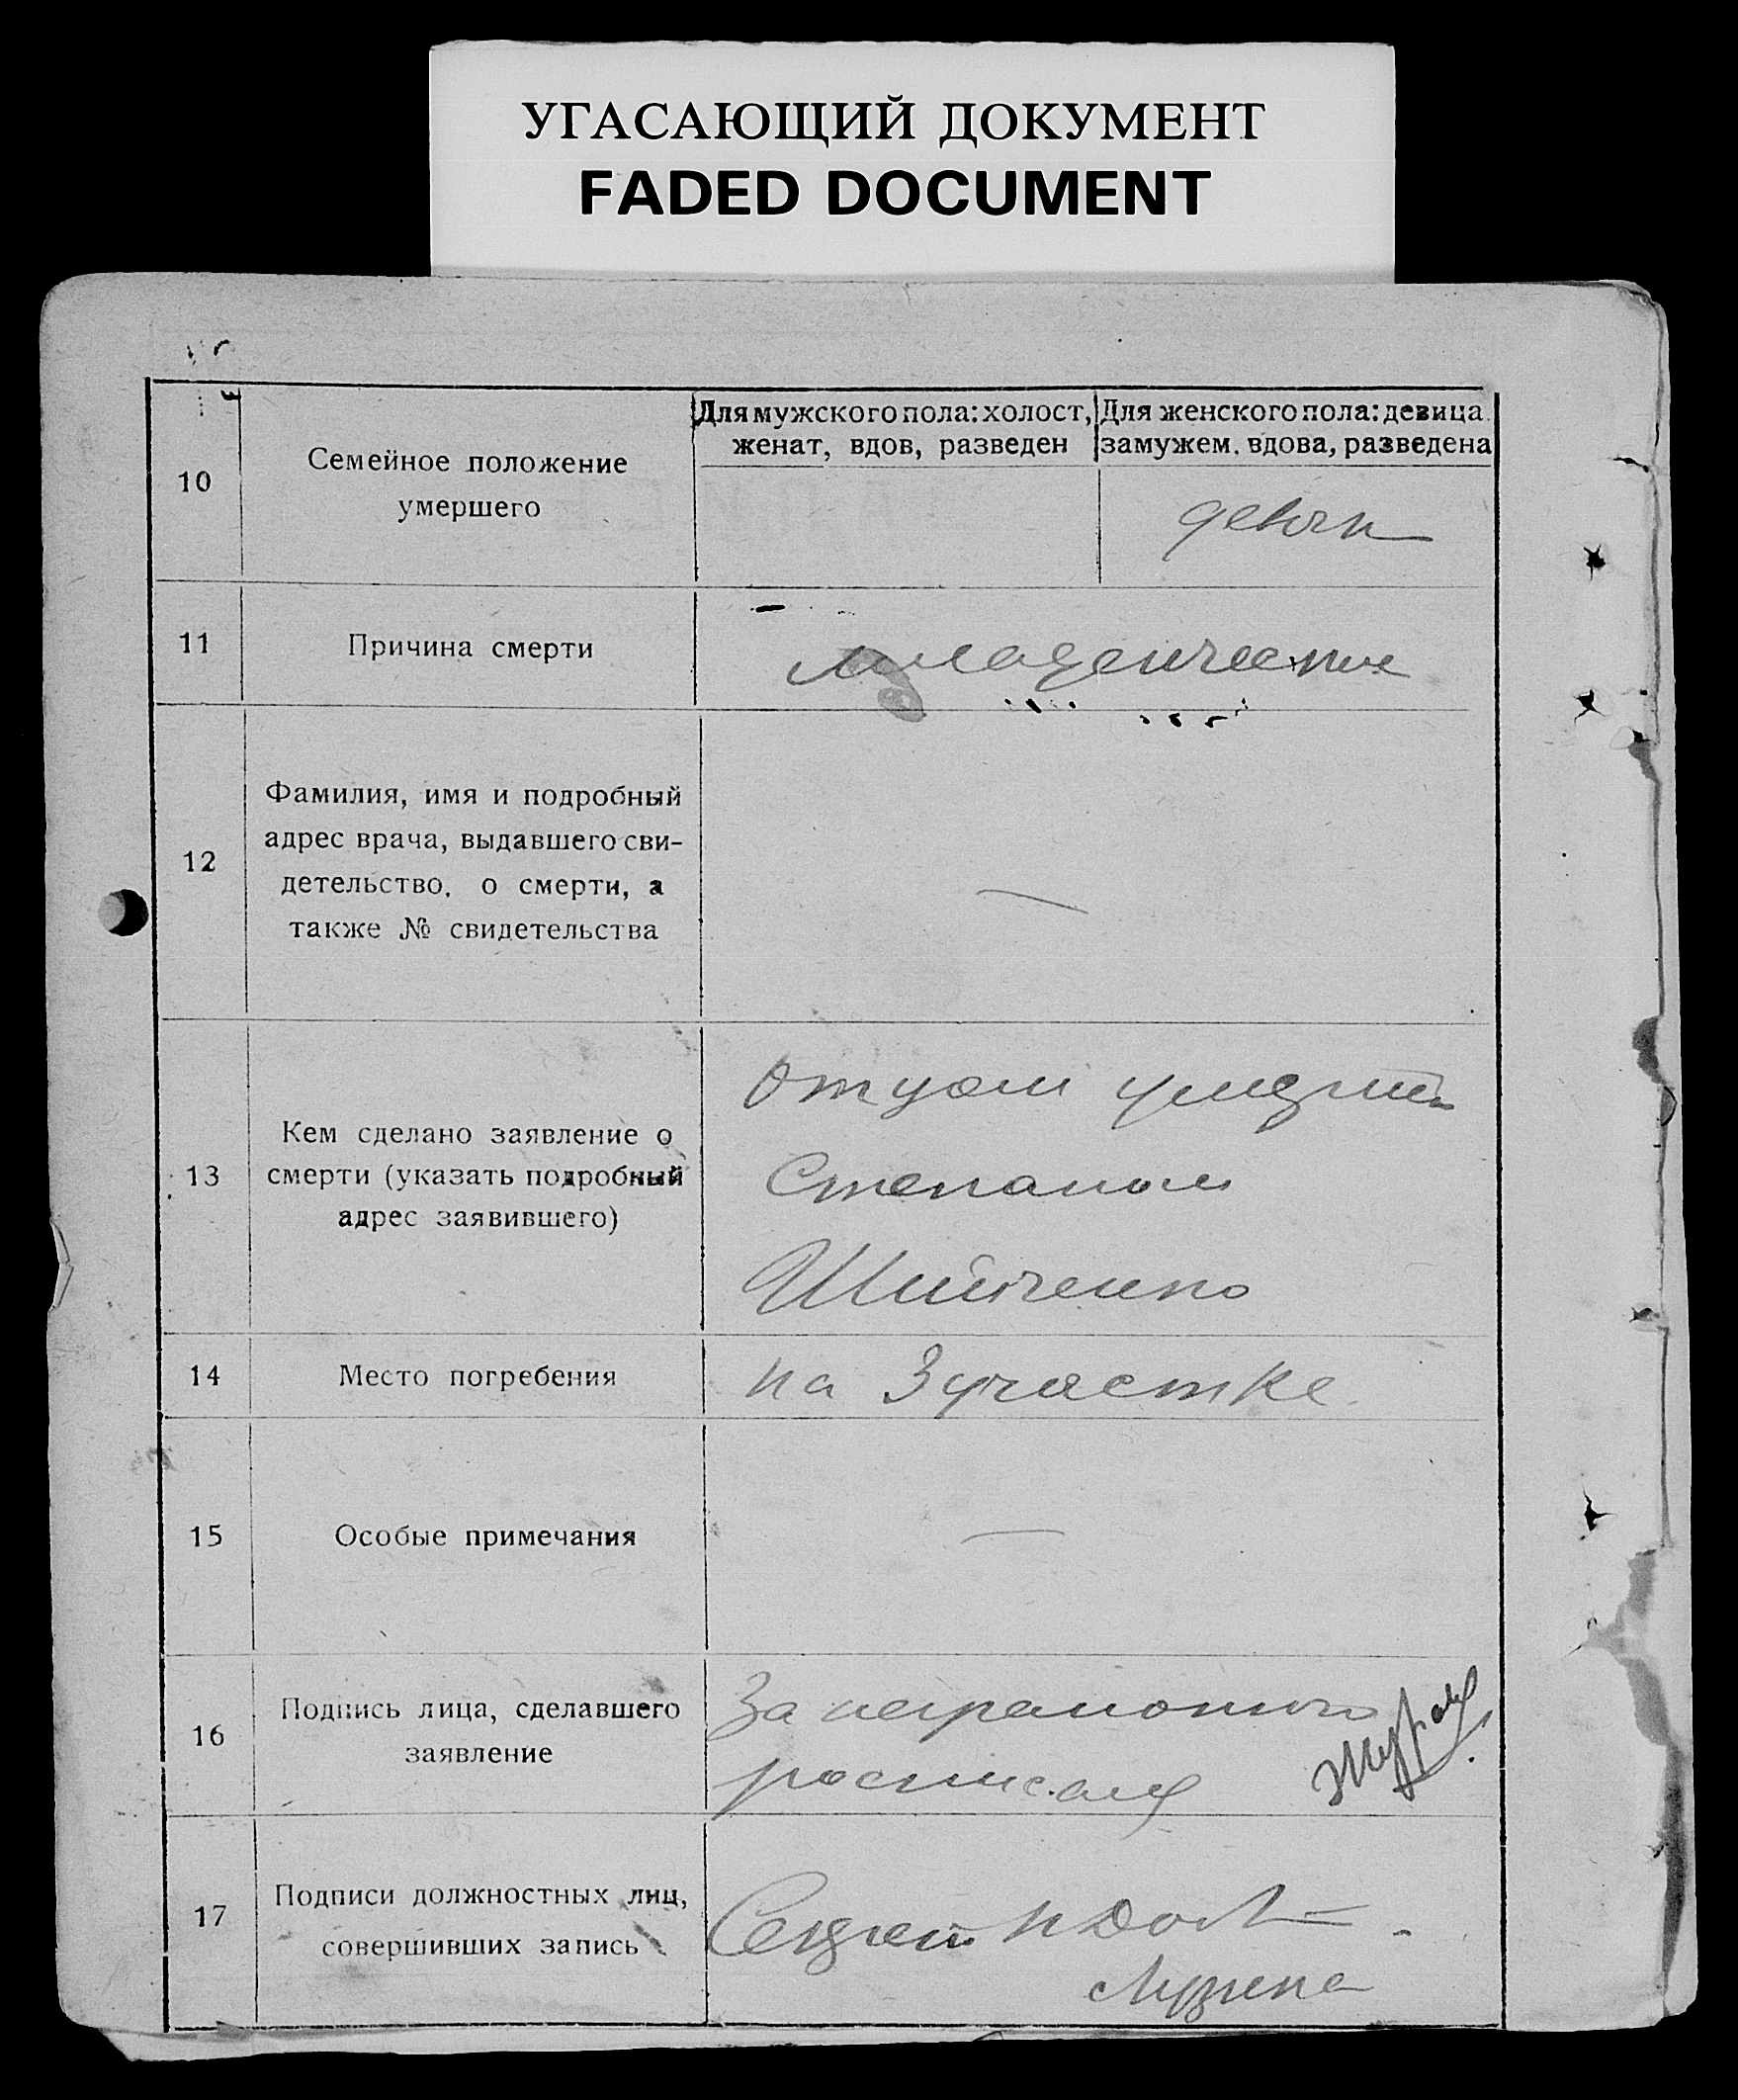 УГАСАЮЩИЙ ДОКУМЕНТ
FADED DOCUMENT
10
Семейное положение
умершего
Для мужского пола: холост,
женат, вдов, разведен
Для женского пола: девица.
замужем. вдова, разведена
11
Причина смерти
младенческая
12
Фамилия, имя и подробный
адрес врача, выдавшего сви-
детельство. о смерти, а
также № свидетельства
—
13
Кем сделано заявление о
смерти (указать подробный
адрес заявившего)
Отцом
Степаном
14
Место погребения
на 3 участке.
15
Особые примечания
—
16
Подпись лица, сделавшего
заявление
За неграмотного
17
Подписи должностных лиц,
совершивших запись